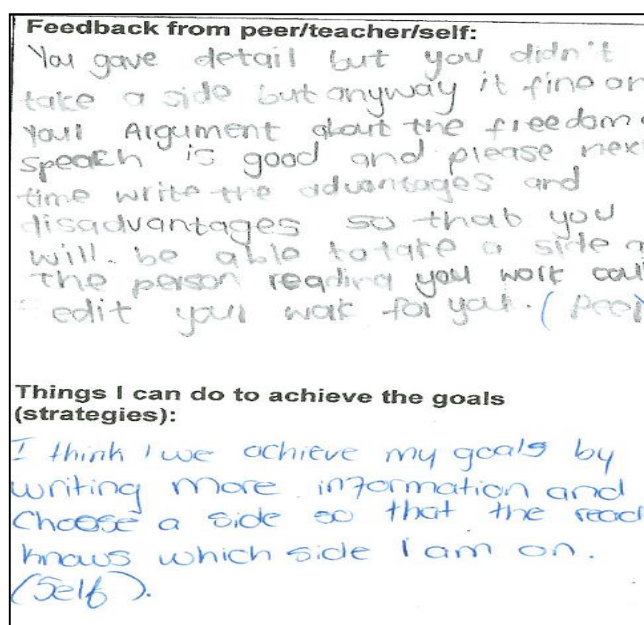 Feedback from peer/teacher/self:
You gave detail but you didn't
take a side but anyway it fine or
your Argument about the freedom
speach is good and please next
time write the advantages and
disadvantages so that you
will be able to take a side
the person reading you work
edit your work for you. (peer)
Things I can do to achieve the goals
(strategies):
I think I we achieve my goals by
writing more information and
Choose a side so that the read
knows which side I am on.
(Self).